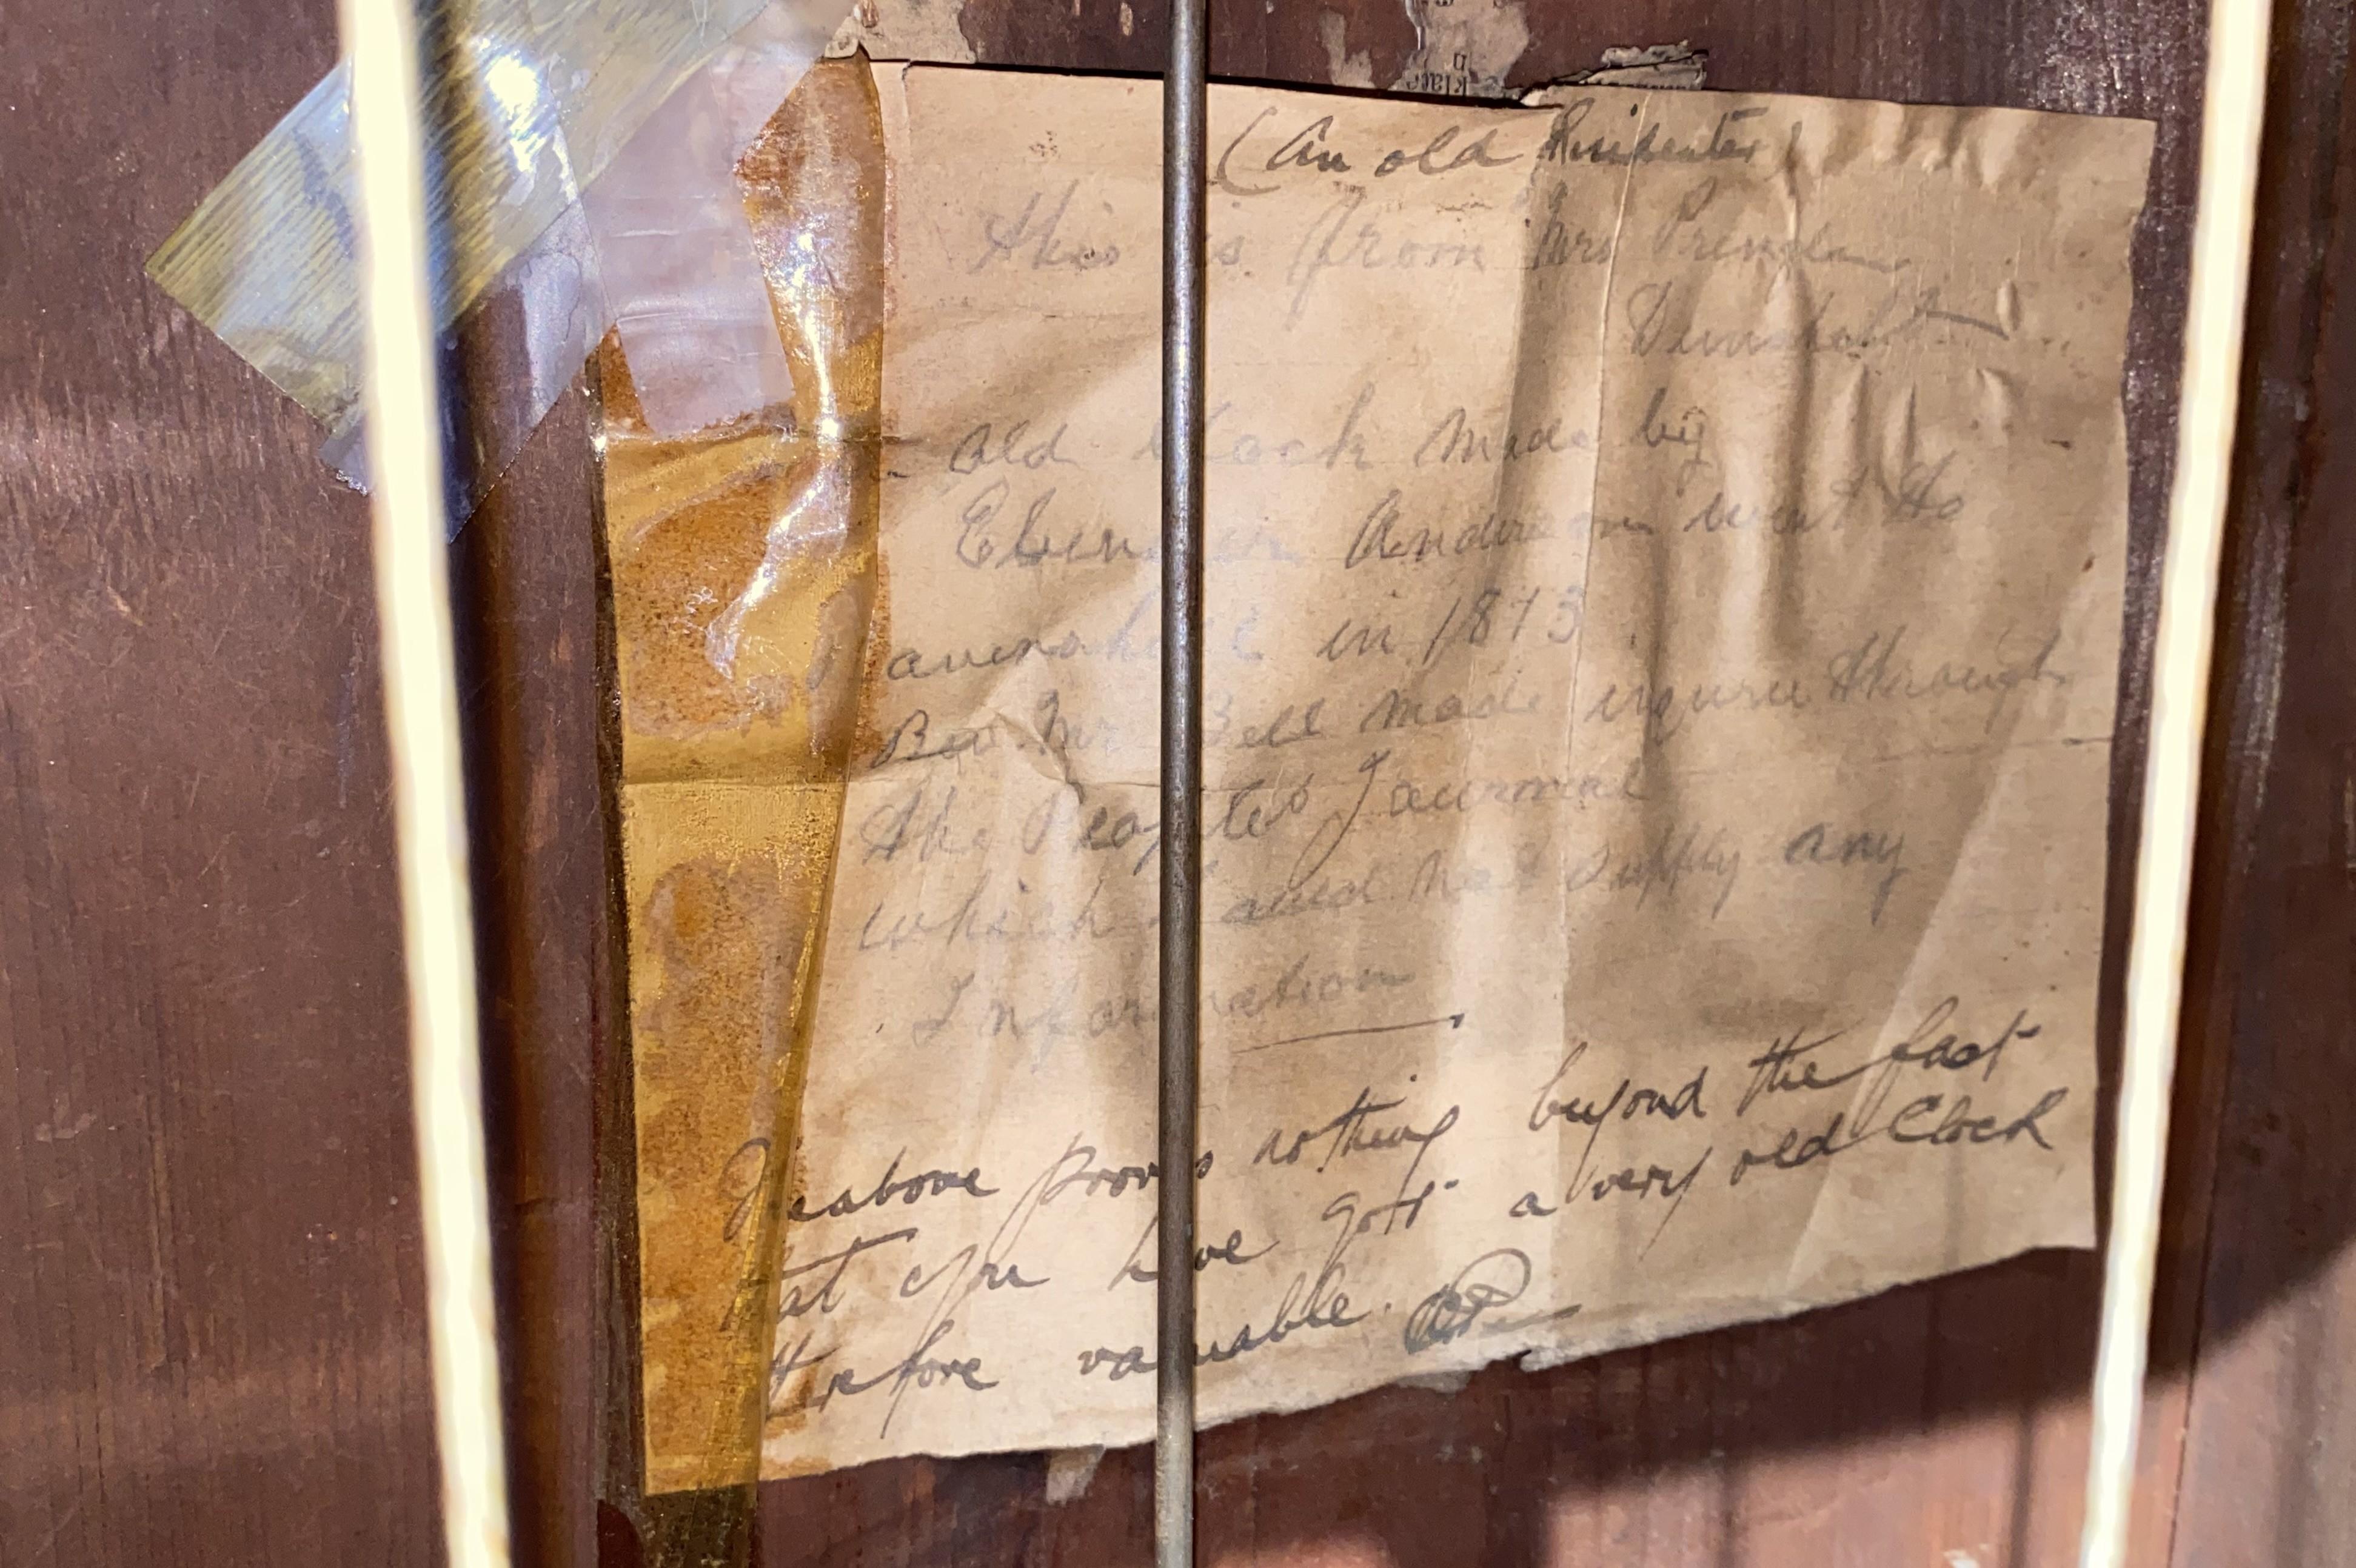 (An old Residenter)
This is from Mrs
old clock made by
Ebenezer Anderson went to
avenshall in 1873
Rev Mr Bell made inquire through
the Peoples Journal
which Could not supply any
Information
The above proves nothing beyond the fact
that you have gott a very old Clock
therefore valuable.